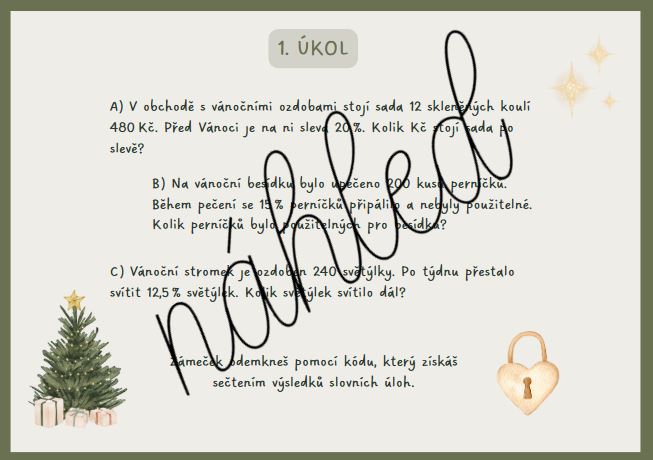 1. ÚKOL
A) V obchodě s vánočními ozdobami stojí sada 12 skleněných koulí
480 Kč. Před Vánoci je na ni sleva 20 %. Kolik Kč stojí sada po
slevě?
B) Na vánoční besídku bylo upečeno 200 kusů perníčků.
Během pečení se 15 % perníčků připálilo a nebyly použitelné.
Kolik perníčků bylo použitelných pro besídku?
C) Vánoční stromek je ozdoben 240 světýlky. Po týdnu přestalo
svítit 12,5 % světýlek. Kolik světýlek svítilo dál?
Zámeček odemkneš pomocí kódu, který získáš
sečtením výsledků slovních úloh.
náhled